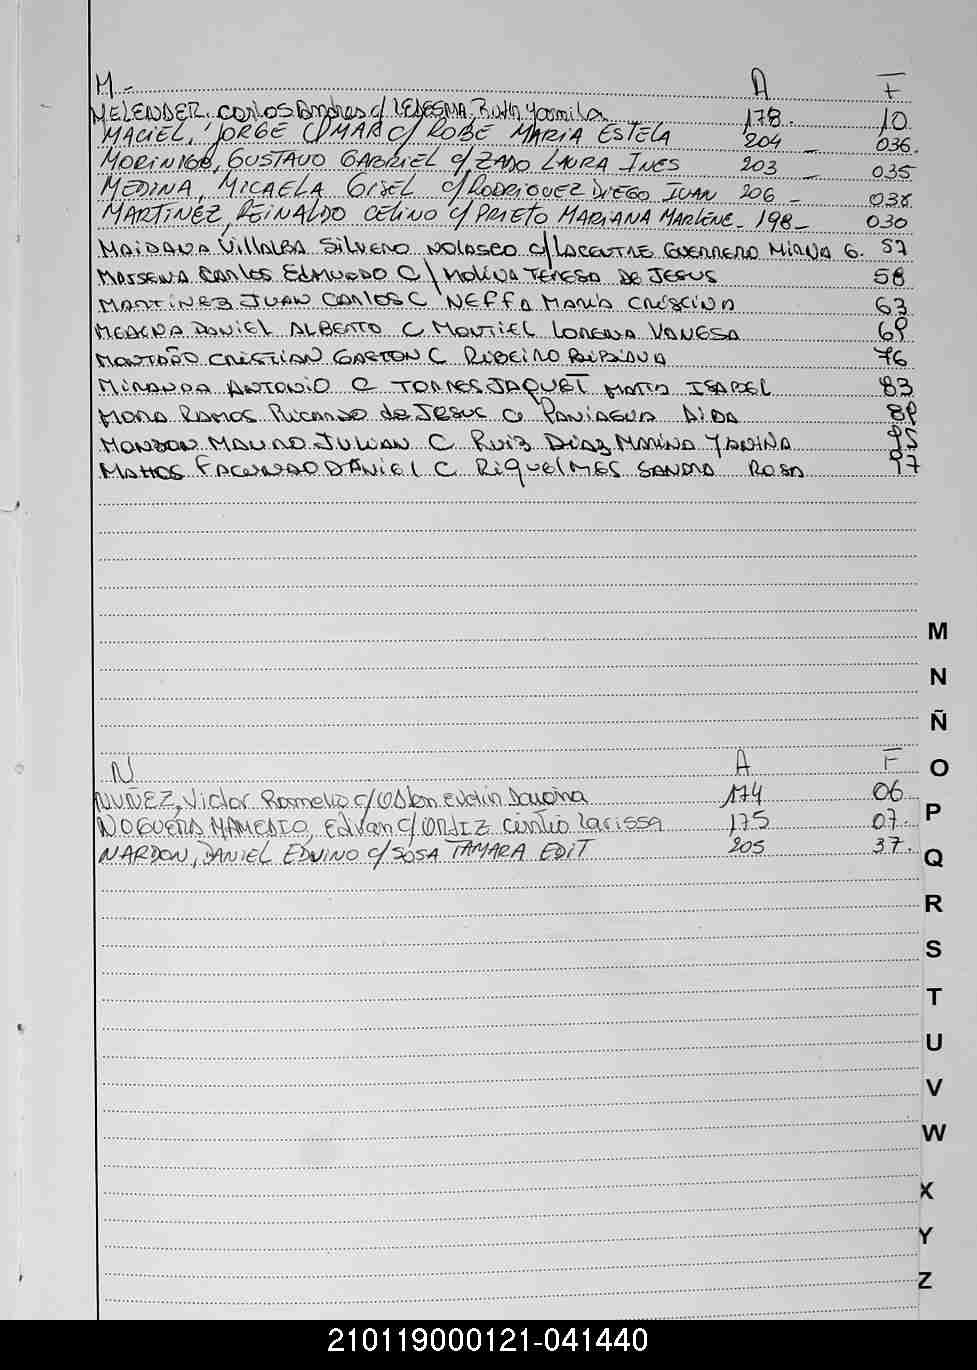 M.- A F
MELENDER, Carlos Andres c/ LEDESMA, Ruth Yasmila 178. 10
MACIEL, JORGE OMAR c/ ROBE MARIA ESTELA 204 - 036.
MORINIGO, GUSTAVO GABRIEL c/ ZADO LAURA INES 203 - 035
MEDINA, MICAELA GISEL c/ RODRIGUEZ DIEGO JUAN 206 - 038
MARTINEZ, REINALDO CELINO c/ PRIETO MARIANA MARLENE - 198 - 030
MAIDANA VILLALBA SILVERO NOLASCO c/ LACENTRE GUERRERO MIRNA G. 57
MASSENA CARLOS EDMUNDO C/ MOLINA TERESA DE JESUS 58
MARTINEZ JUAN CARLOS C NEFFA MARIA CRISTINA 63
MEDINA DANIEL ALBERTO C MONTIEL LORENA VANESA 69
MONTAÑO CRISTIAN GASTON C RIBEIRO BIBIANA 76
MIRANDA ANTONIO C TORRES JAQUET MARTA ISABEL 83
MORA RAMOS RICARDO de JESUS C PANIAGUA AIDA 89
MONZON MAURO JULIAN C RUIZ DIAZ MARINA YANINA 95
MATTOS FACUNDO DANIEL C RIQUELMES SANDRA ROSA 97
M
N
Ñ
N A F O
NUÑEZ, Victor Romelio c/ Evelin 174 06
NOGUERA MAMEDIO, Edivan c/ ORTIZ Cintia Larissa 175 07. P
NARDON, DANIEL EDVINO c/ SOSA TAMARA EDIT 205 37.
Q
R
S
T
U
V
W
X
Y
Z
210119000121-041440